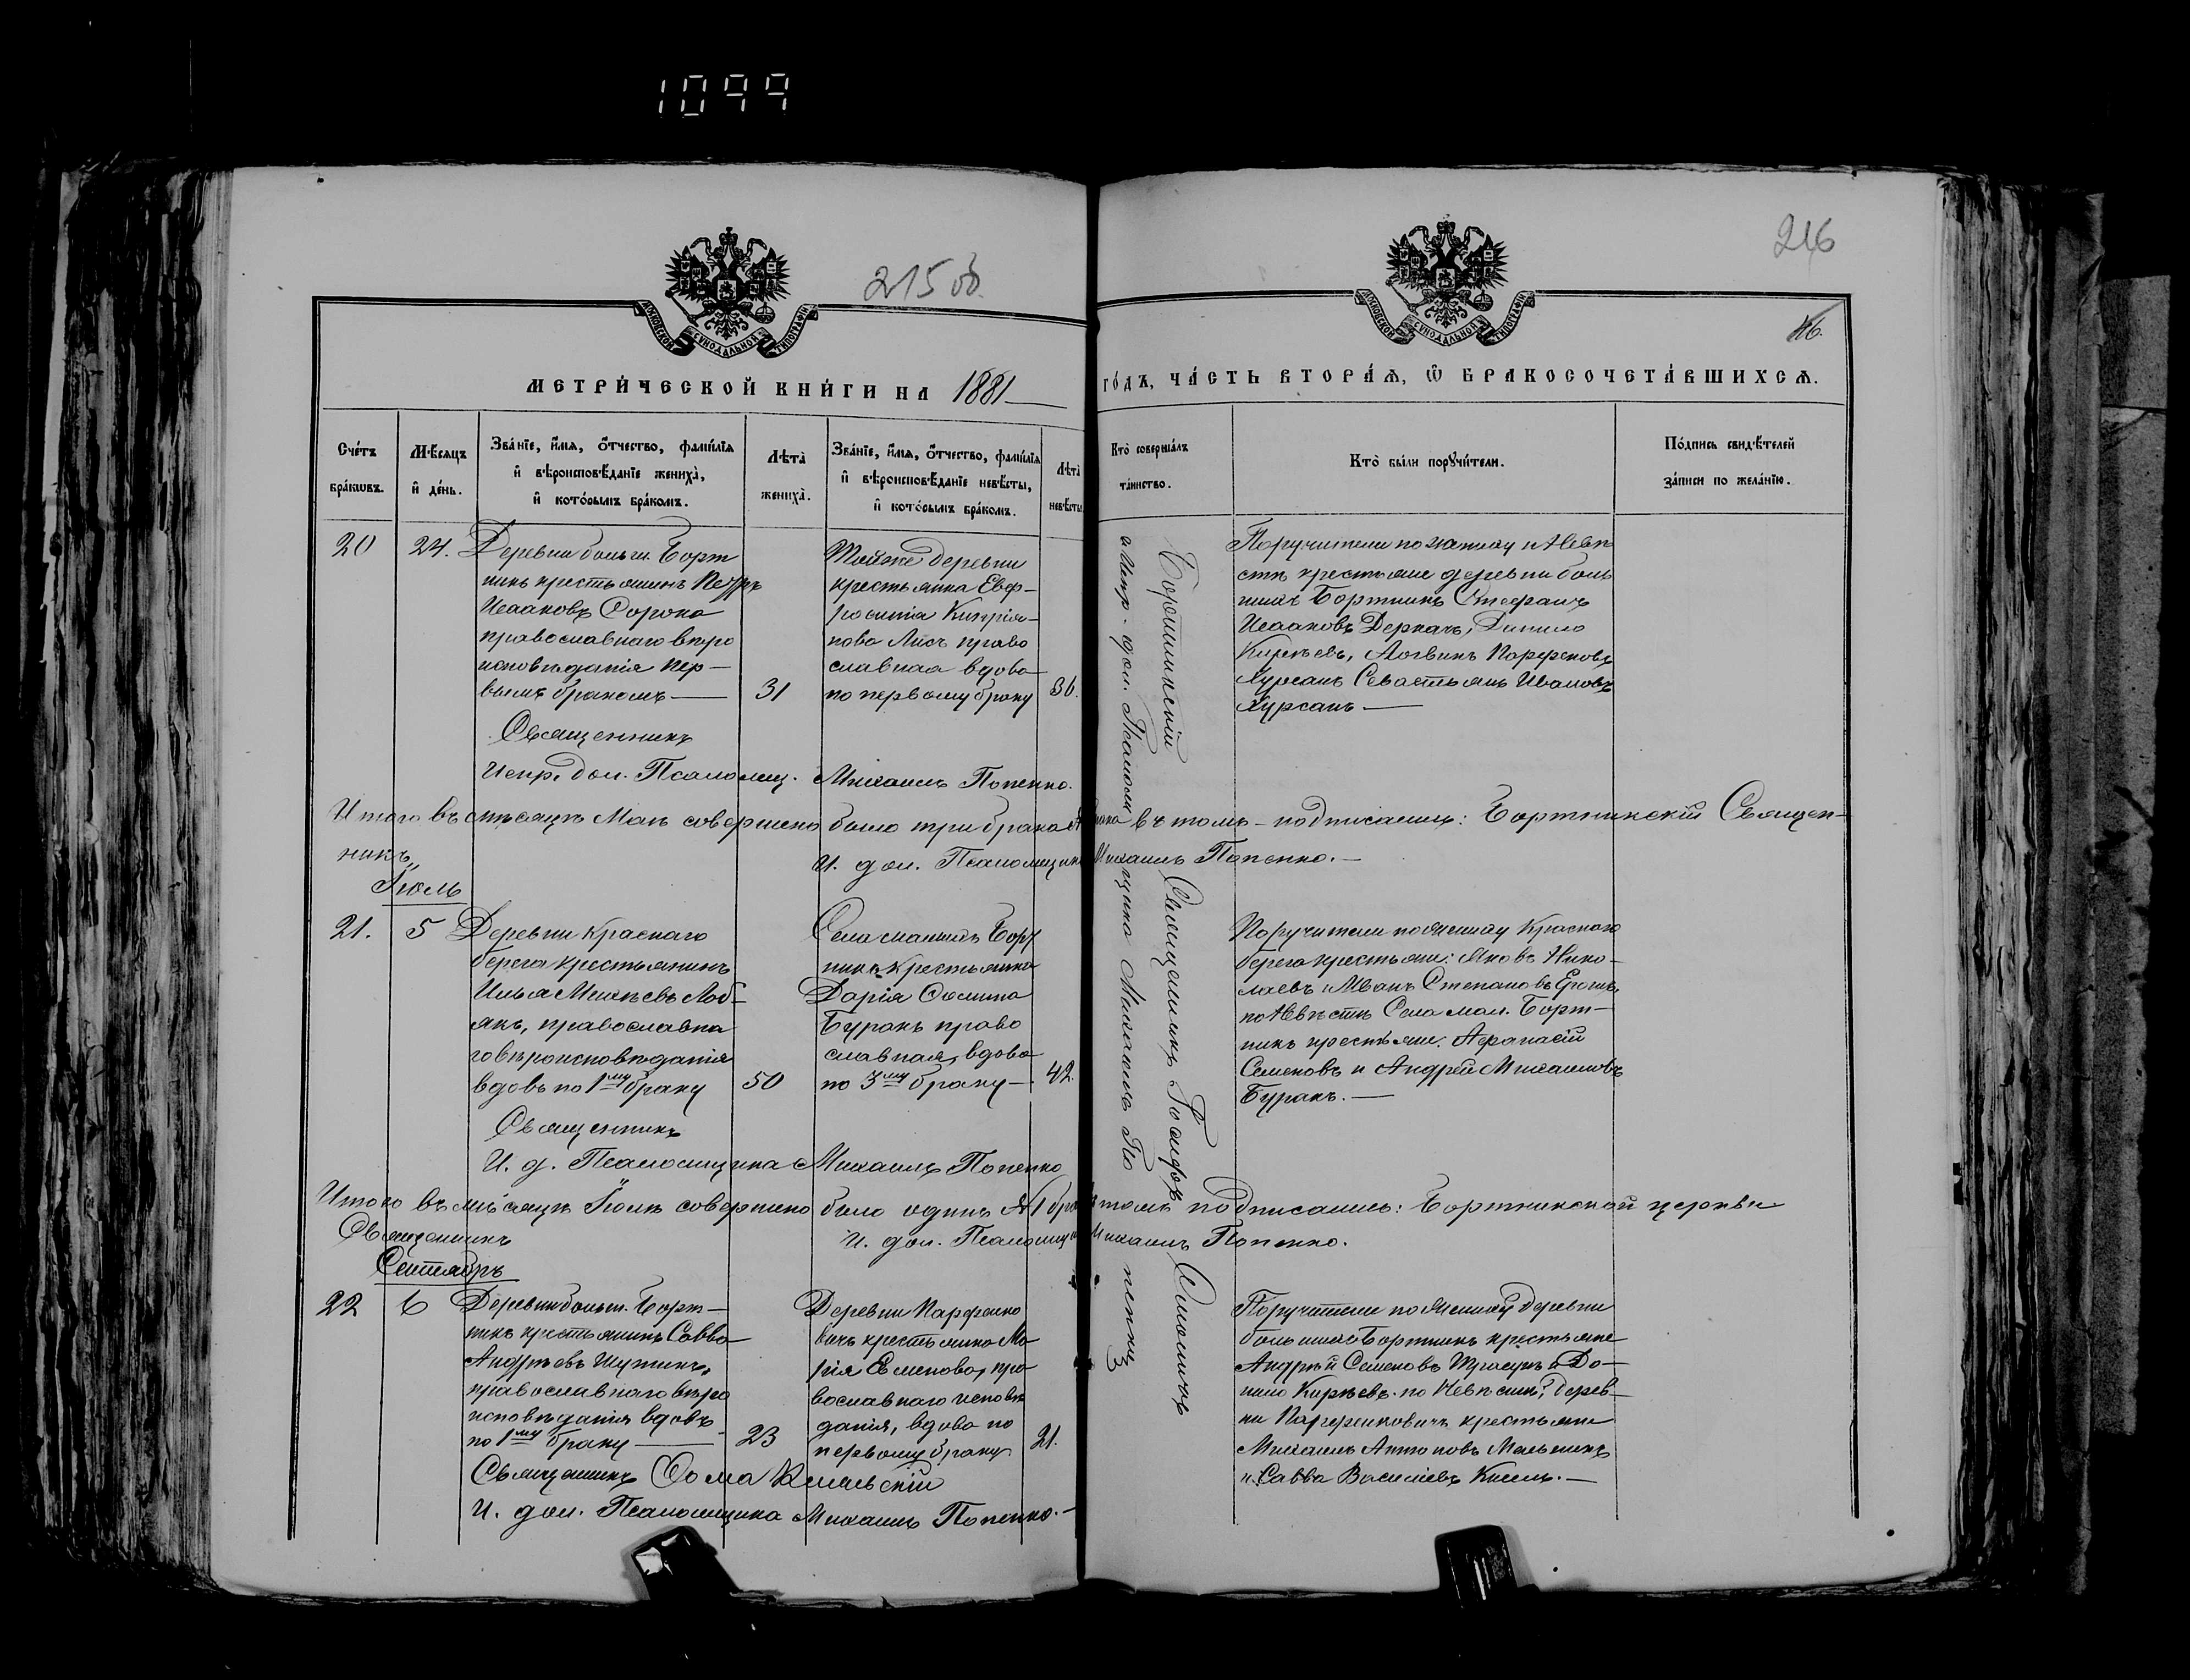 1099
215 об.
216
46.
МОСКОВСКОЙ СѴНОДАЛЬНОЙ ТИПОГРАФІИ
МОСКОВСКОЙ СѴНОДАЛЬНОЙ ТИПОГРАФІИ
МЕТРИЧЕСКОЙ КНИГИ НА 1881 ГОДЪ, ЧАСТЬ ВТОРАЯ, Ѡ БРАКОСОЧЕТАВШИХСЯ.
Счетъ
браковъ.
Мѣсяцъ
и день.
Званіе, имя, отчество, фамилія
и вѣроисповѣданіе жениха,
и которымъ бракомъ.
Лѣта
жениха.
Званіе, имя, отчество, фамилія
и вѣроисповѣданіе невѣсты,
и которымъ бракомъ.
Лѣта
невѣсты
Кто совершалъ
таинство.
Кто были поручители.
Подпись свидѣтелей
записи по желанію.
20
24.
Деревни больш. Борт
никъ крестьянинъ Петръ
Исааковъ Сорока
православнаго вѣро
исповѣданія пер-
вымъ бракомъ
31
Тойже деревни
крестьянка Евф-
росинія Кипрія-
нова Лисъ право
славная вдова
по первому браку
36.
Поручители по жениху и Невѣ
стѣ крестьяне деревни боль
шихъ Бортникъ Стефанъ
Исааковъ Деркачъ, Данило
Кирѣевъ, Логвинъ Парфеновъ
Хурсанъ Севастьянъ Ивановъ
Хурсанъ
Священникъ
Испр. дол. Псаломщ. Михаилъ Попенко.
Итого въ мѣсяцѣ Маѣ совершено было три брака въ томъ подписались: Бортникскій Священ-
никъ
И. дол. Псаломщика Михаилъ Попенко.
Іюль
21.
5
Деревни Краснаго
берега крестьянинъ
Илья Михѣевъ Лоб-
якъ, православна
го вѣроисповѣданія
вдовъ по 1му браку
50
Села малыхъ Борт
никъ крестьянка
Дарія Фомина
Буракъ право
славная, вдова
по 3му браку
42.
Поручители по Жениху Краснаго
берега крестьяне: Яковъ Нико-
лаевъ и Иванъ Степановъ
по Невѣстѣ Села мал. Борт-
никъ крестьяне: Афанасій
Семеновъ и Андрей Михаиловъ
Буракъ.
Священникъ
И. д. Псаломщика Михаилъ Попенко
Итого въ мѣсяцѣ Іюлѣ совершено было одинъ №1 бракъ томъ подписались: Бортникской церкви
Священникъ
И. дол. Псаломщика Михаилъ Попенко.
Сентябрь
22
6
Деревни больш. Борт-
никъ крестьянинъ Савва
Андрѣевъ Шутикъ,
православнаго вѣро
исповѣданія вдовъ
по 1му браку
23
Деревни Парфенко
вичъ крестьянка Ма
рія Семенова, пра
вославнаго исповѣ
данія, вдова по
первому браку
21.
Поручители по Жениху деревни
большихъ Бортникъ крестьяне
Андрѣй Семеновъ и Да-
нило Кирѣевъ. по Невѣстѣ: дерев-
ни Парфенковичъ крестьяне
Михаилъ Антоновъ Мельникъ
и Савва Василіевъ Кисель.
Священникъ Фома
И. дол. Псаломщика Михаилъ Попенко.
Бортникскій Священникъ
Испр. дол. Псаломщика Михаилъ Попенко